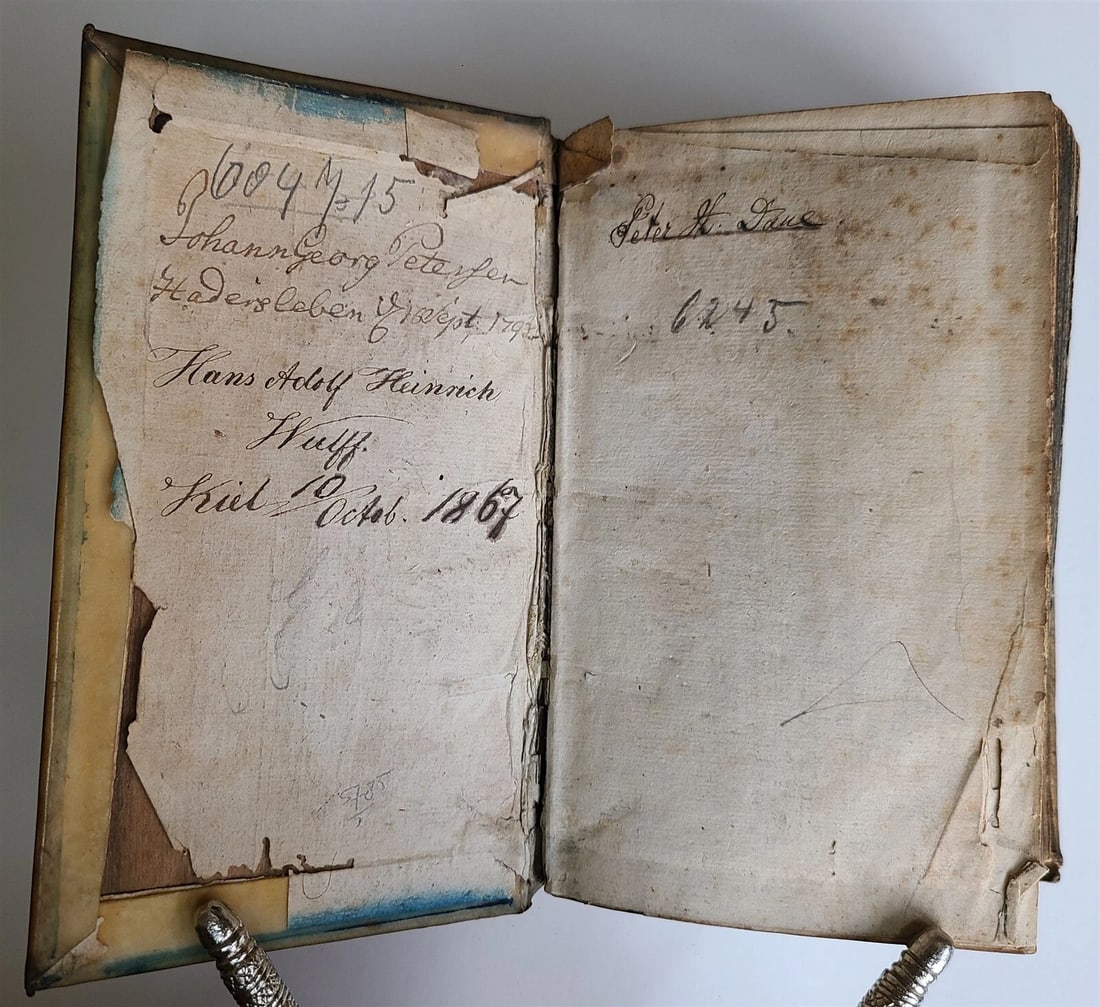 Johann Georg Petersen
Hadersleben Sept. 179
Hans Adolf Heinrich
Wulff.
Kiel 10 Octob. 1867
Peter H.
6245.